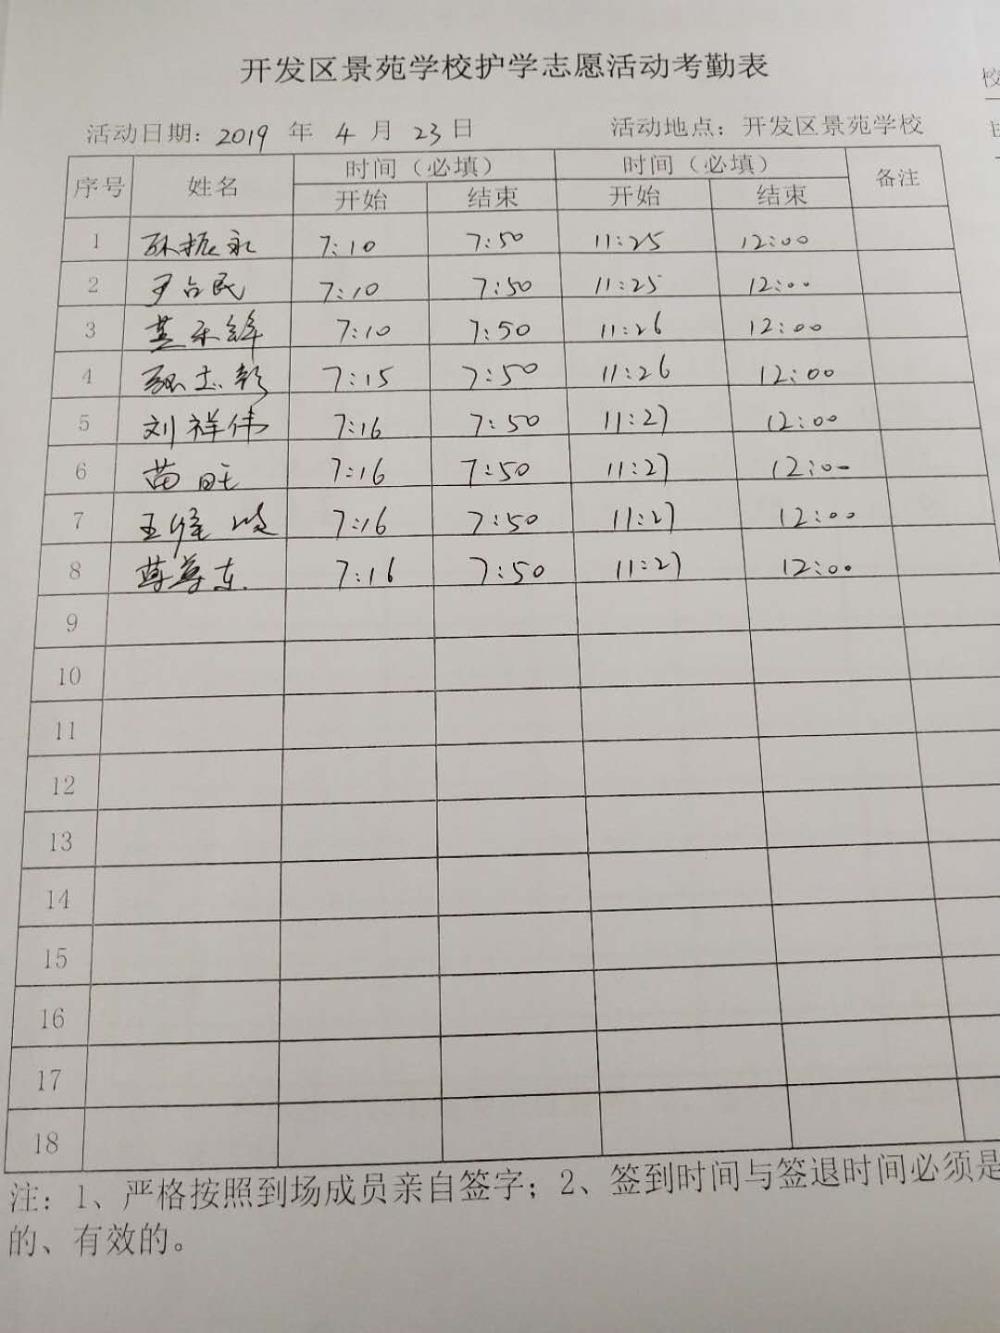 开发区景苑学校护学志愿活动考勤表
活动日期: 2019 年 4 月 23 日 活动地点: 开发区景苑学校
序号 姓名 时间（必填） 时间（必填） 备注
开始 结束 开始 结束
1 孙振永 7:10 7:50 11:25 12:00
2 尹占民 7:10 7:50 11:25 12:00
3 7:10 7:50 11:26 12:00
4 7:15 7:50 11:26 12:00
5 刘祥伟 7:16 7:50 11:27 12:00
6 苗旺 7:16 7:50 11:27 12:00
7 王 7:16 7:50 11:27 12:00
8 7:16 7:50 11:27 12:00
9
10
11
12
13
14
15
16
17
18
注: 1、严格按照到场成员亲自签字; 2、签到时间与签退时间必须是
的、有效的。
校